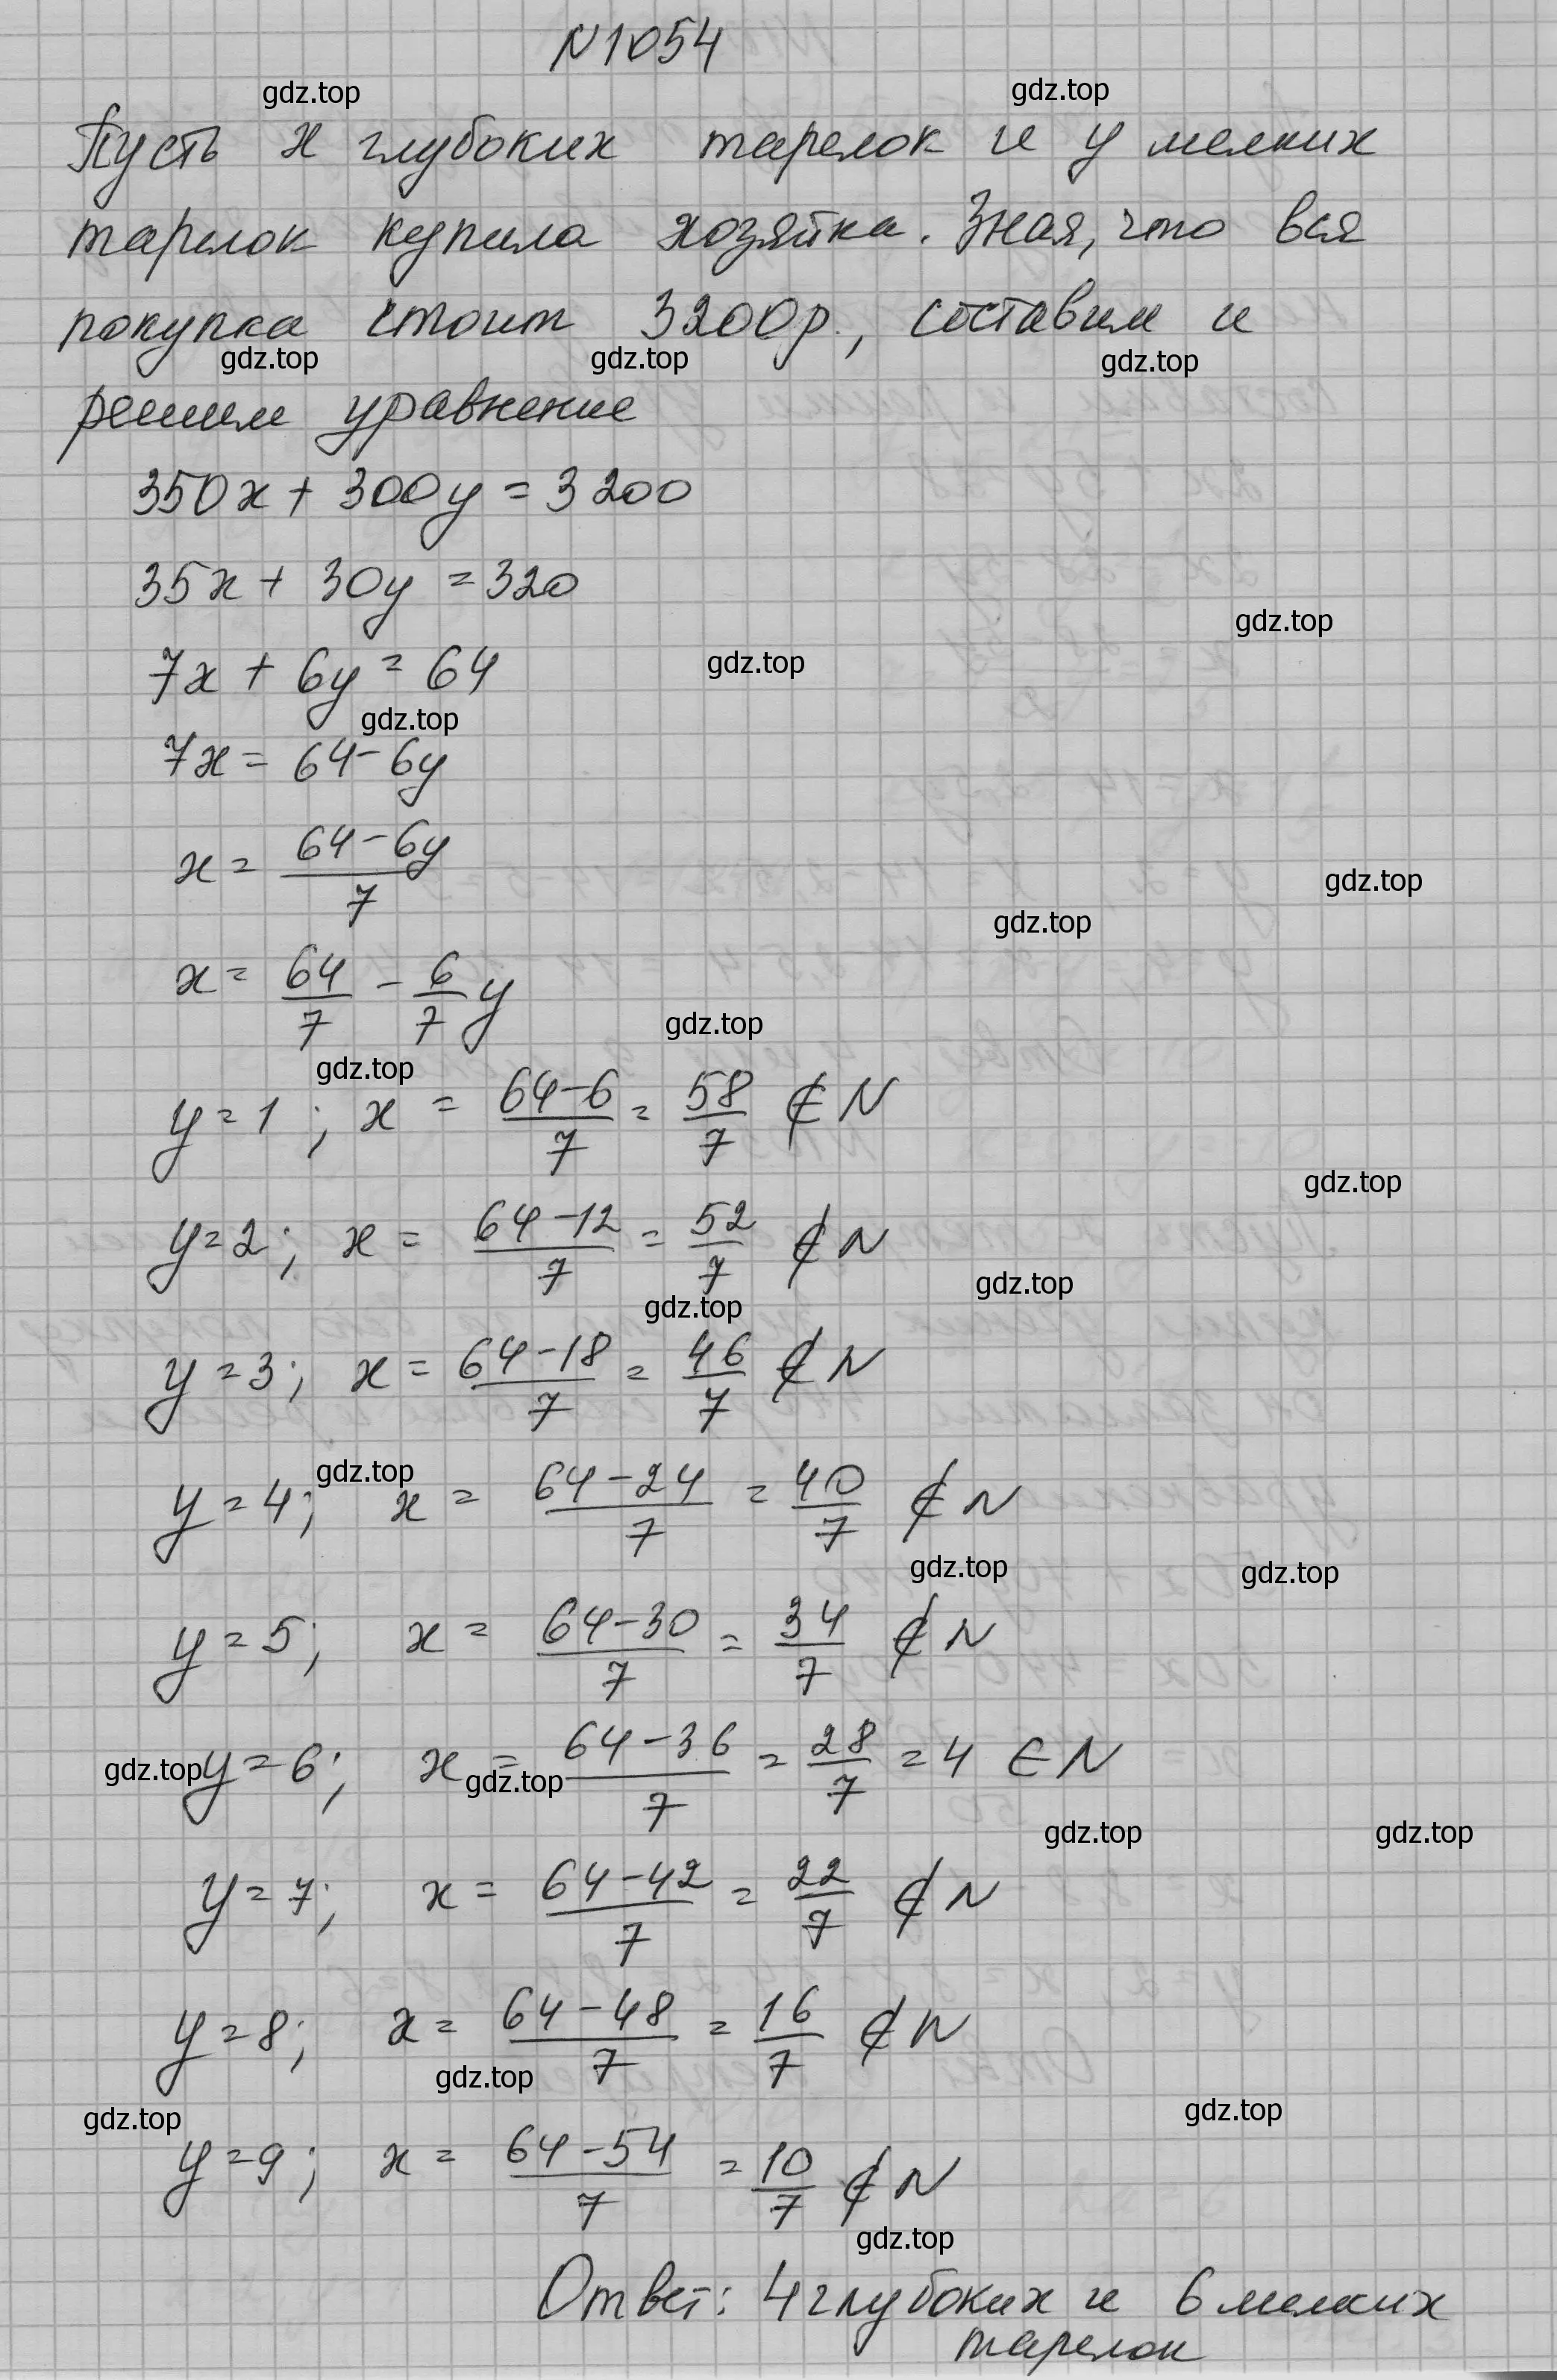 N1054
gdz.top gdz.top
Пусть x глубоких тарелок и y мелких
тарелок купила хозяйка. Зная, что вся
покупка стоит 3200р., составим и
gdz.top gdz.top gdz.top
решим уравнение
350x + 300y = 3200
35x + 30y = 320
gdz.top
7x + 6y = 64 gdz.top
gdz.top
7x = 64 - 6y
x = (64 - 6y)/7
gdz.top
gdz.top
x = 64/7 - 6/7 y
gdz.top
gdz.top
y = 1; x = (64-6)/7 = 58/7 ∉ N
gdz.top
y = 2; x = (64-12)/7 = 52/7 ∉ N
gdz.top
gdz.top
y = 3; x = (64-18)/7 = 46/7 ∉ N
gdz.top
y = 4; x = (64-24)/7 = 40/7 ∉ N
gdz.top gdz.top
y = 5; x = (64-30)/7 = 34/7 ∉ N
gdz.top y = 6; x = (64-36)/7 = 28/7 = 4 ∈ N
gdz.top
gdz.top gdz.top
y = 7; x = (64-42)/7 = 22/7 ∉ N
y = 8; x = (64-48)/7 = 16/7 ∉ N
gdz.top
gdz.top gdz.top
y = 9; x = (64-54)/7 = 10/7 ∉ N
gdz.top
Ответ: 4 глубоких и 6 мелких
тарелок